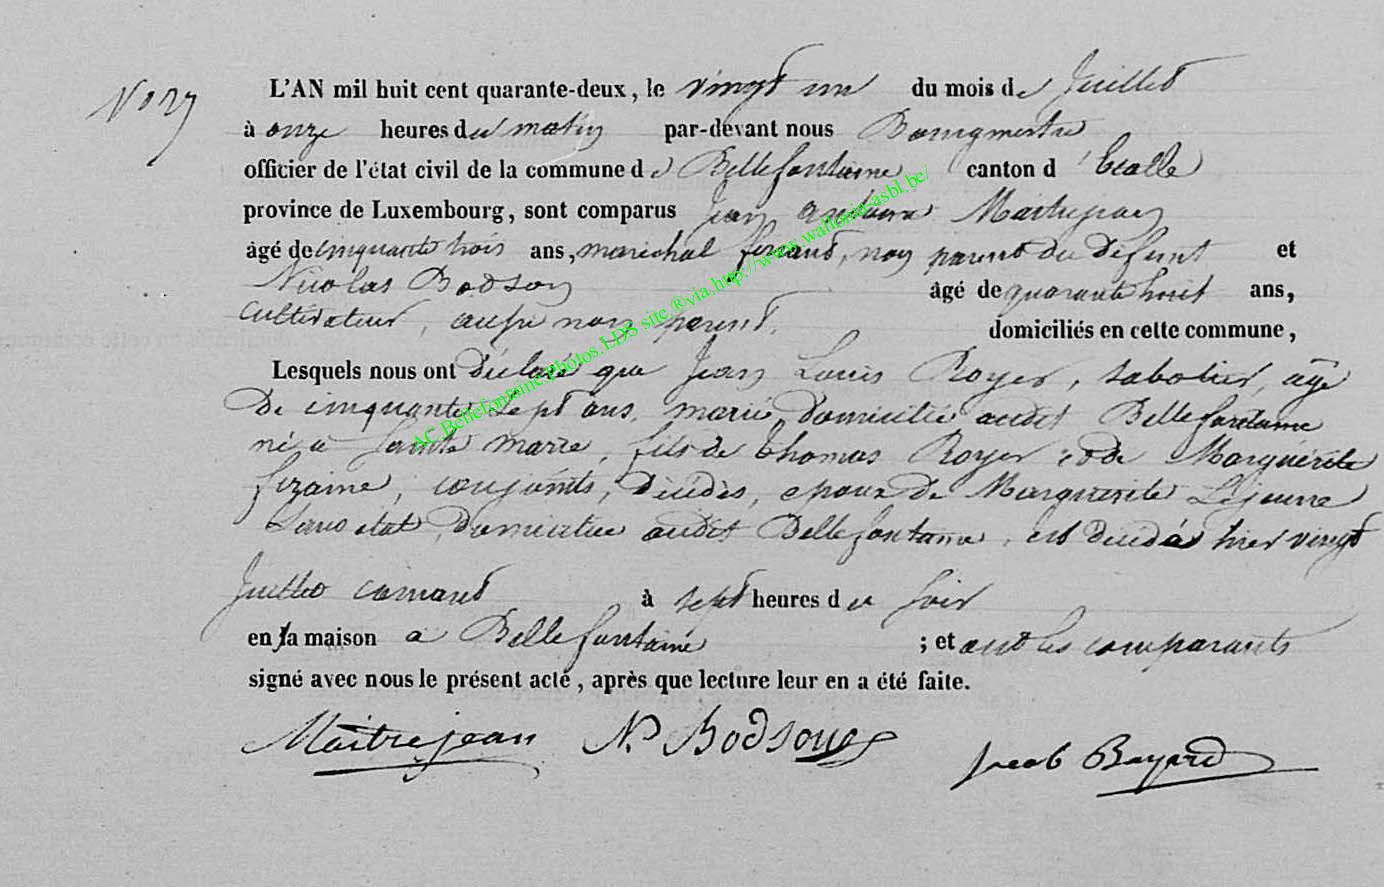 L'AN mil huit cent quarante-deux, le vingt un du mois de Juillet
à onze heures du matin par-devant nous Bourgmestre
officier de l'état civil de la commune de Bellefontaine canton d'Etalle
province de Luxembourg, sont comparus Jean Antoine Maitrejean
âgé de cinquante trois ans, maréchal ferrant, non parent du défunt et
Nicolas Bodson âgé de quarante huit ans,
cultivateur, aussi non parent. domiciliés en cette commune,
Lesquels nous ont déclaré que Jean Louis Royer, sabotier, âgé
de cinquante sept ans, marié, domicilié audit Bellefontaine
né a Sainte marie, fils de thomas Royer et de Marguérite
, conjoints, décédés, epoux de Marguerite Lejeune
sans etat, domiciliée audit Bellefontaine, est décédé hier vingt
Juillet courant à sept heures du soir
en sa maison a Bellefontaine ; et ont les comparants
signé avec nous le présent acte, après que lecture leur en a été faite.
Maitrejean N. Bodson Jacob Bayard
AC Bellefontaine.Photos.LDS site ®via http://www.wallonia-asbl.be/